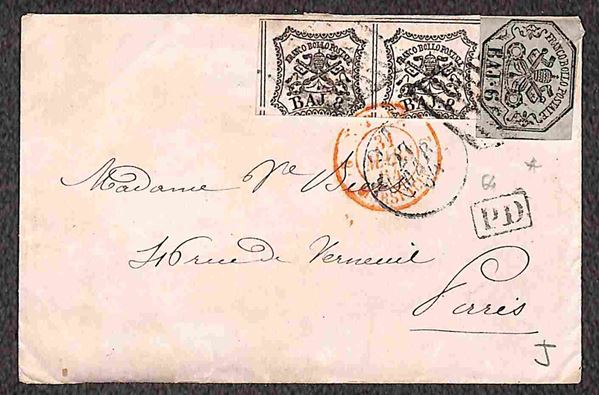 FRANCO BOLLO POSTALE
BAJ. 8
FRANCO BOLLO POSTALE
BAJ. 8
FRANCO BOLLO POSTALE
BAJ. 6
Madame Ve
PD
46 rue de Verneuil
Paris